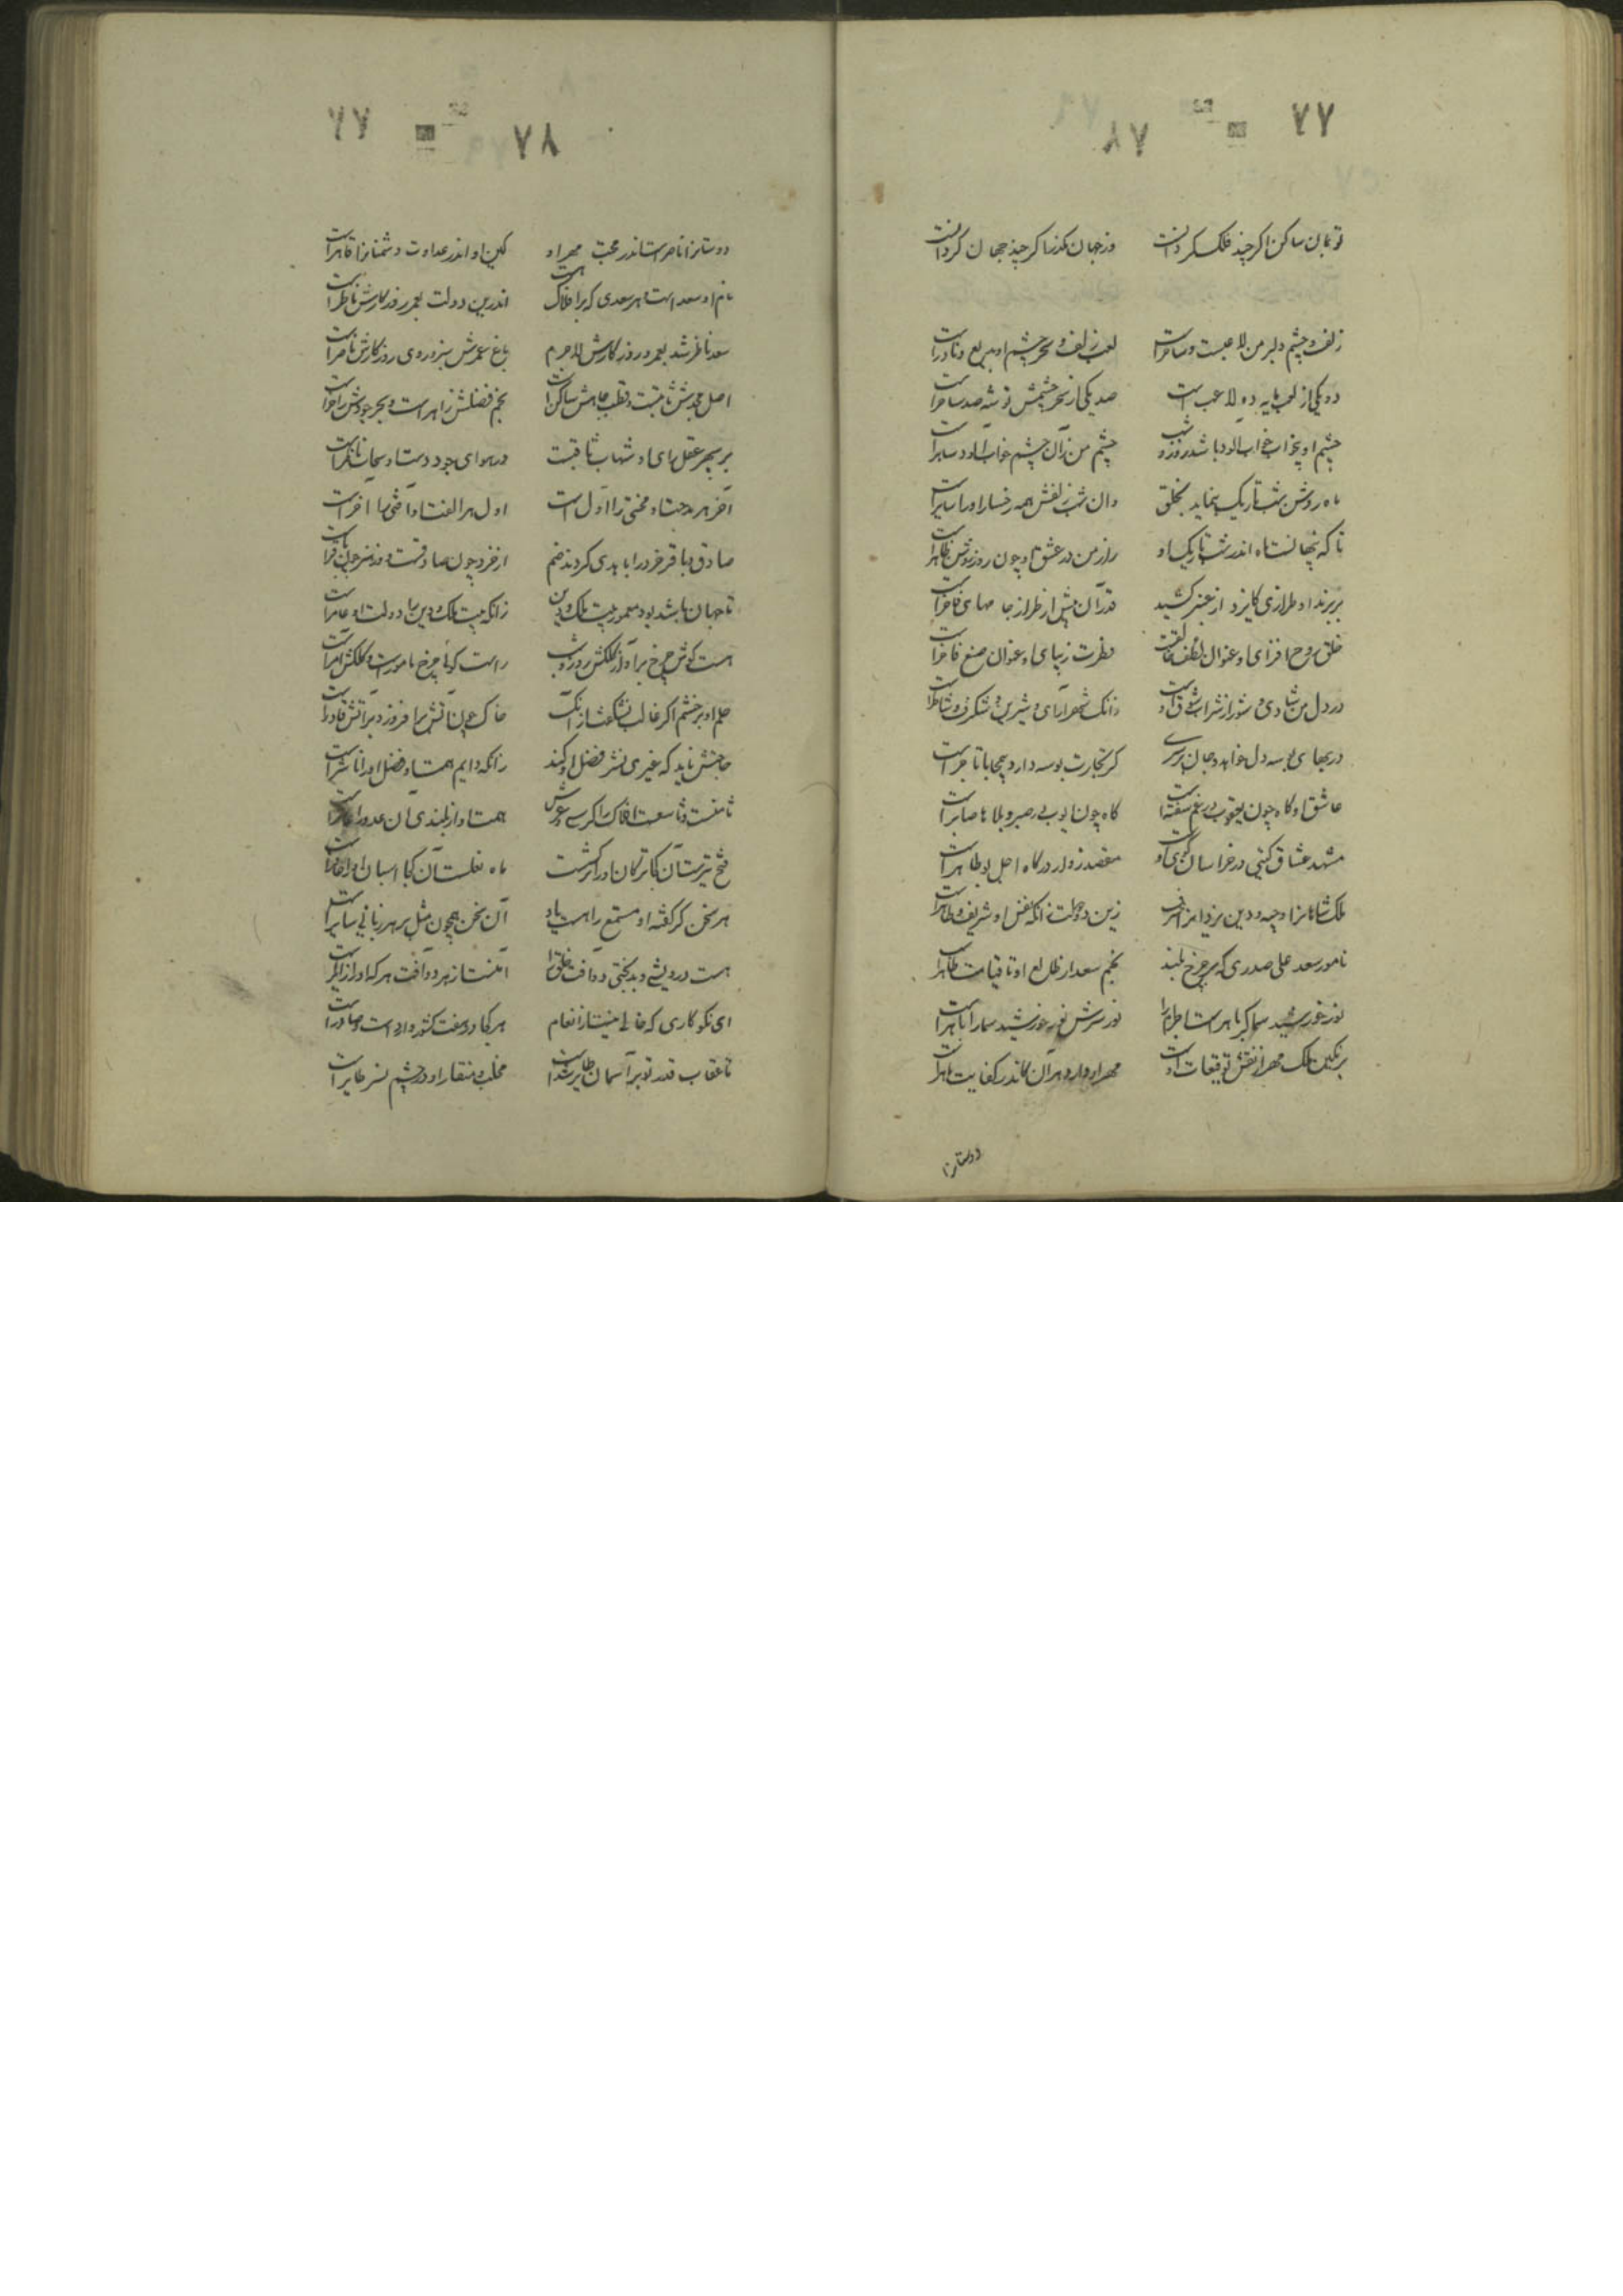 ۷۷
۷۸
تو بمان ساکن اگر چند فلک گردانست    وز جهان مگذر اگر چند جهان گردانست
زلف و چشم دلبر من لاعبست و ساحرست    لعب زلف و سحر چشم او بدیع و نادرست
ده یکی از لعب مایه ده لاعب است    صد یکی از سحر چشمش توشه صد ساحرست
چشم او بیخواب خواب آلود باشد روز و شب    چشم من زان چشم خواب آلود ساهرست
ماه روشن شب تاریک بنماید بخلق    وان شب زلفش همه رخسار او را ساترست
تا که پنهانست ماه اندر شب تاریک او    راز من در عشق او چون روز روشن ظاهرست
بر پرند او طرازی کایزد از عنبر کشید    قدر آن بیش از طراز جامهای فاخرست
خلق روح افزای او عنوان لطف خالقست    فطرت زیبای او عنوان صنع فاطرست
در دل من شادی و شور از شراب شوق اوست    زانک شعرآرای و شیرین و شگرف و شاطرست
در بهای بوسه دل خواهد و جان بر سری    گر تجارت بوسه دارد بی محابا تاجرست
عاشق او گاه چون یعقوب در غم سفته است    گاه چون ایوب بی در صبر و بلاها صابرست
مشهد عشاق گیتی در خراسان کوی او    مقصد زوار درگاه اجل بوطاهرست
ملک شاهانرا وجیه و دین یزدانرا شرف    زین دولت زانکه نفس او شریف و طاهرست
نامور سعد علی صدری که بر چرخ بلند    نجم سعد از طالع او تا قیامت ظاهرست
نور خورشید سما گر باهرست اجرام را    نور بشرش نور خورشید سما را باهرست
بر نگین ملک مهر از نقش توقیعات اوست    مهر او دارد هر آن کاندر کفایت ماهرست
دوستانرا
۷۷
۷۸
دوستانرا ناصرست اندر محبت مهر او    کین او اندر عداوت دشمنانرا قاهرست
نام او سعد است هر سعدی که بر افلاک هست    اندرین دولت بعمر و روزگارش ناظرست
سعد ناظر شد بعمر و روزگارش لاجرم    باغ عمرش سبز و روی روزگارش ناضرست
اصل مجدش ثابتست و قطب جاهش ساکن است    نجم فضلش زاهر است و بحر جودش زاخرست
بر سپهر عقل رای او شهاب ثاقبت    در هوای جود دست او سحاب ماطرست
آخر هر مدحت او محنتی را اول است    اول هر الفت او آفتی را آخرست
صادق و باقر خرد را بابدی کردند ضم    از خرد چون صادقست و در هنر چون باقرست
تا جهان باشد بود معمور بیت ملک و دین    زانکه بیت ملک و دین را دولت او عامرست
هست گوش چرخ بر آواز کلکش روز و شب    راست گویی چرخ مامورست و کلکش آمرست
حلم او بر خشم اگر غالب نشد نشگفت از آنک    خاک چون آتش برافروزد بر آتش قادرست
حاجتش ناید که غیری نشر فضل او کند    زانکه دایم همت او فضل او را ناشرست
ثامنست و تاسعست افلاک را کرسی و عرش    همت او از بلندی آن عدد را عاشرست
فتح تیرست آن کجا ترکان او را ترکشست    ماه نعلست آن کجا اسبان او را حافرست
هر سخن کز گفته او مستمع را هست یاد    آن سخن همچون مثل بر هر زبانی سایرست
هست درویشی و بدبختی دو آفت خلق را    ایمنست از هر دو آفت هر که او را زایرست
ای نکوکاری که خالی نیست از انعام    هر کجا در هفت کشور وارد است و صادرست
تا عقاب قدر تو بر آسمان طایر شدست    مخلب و منقار او در چشم نسر طایرست